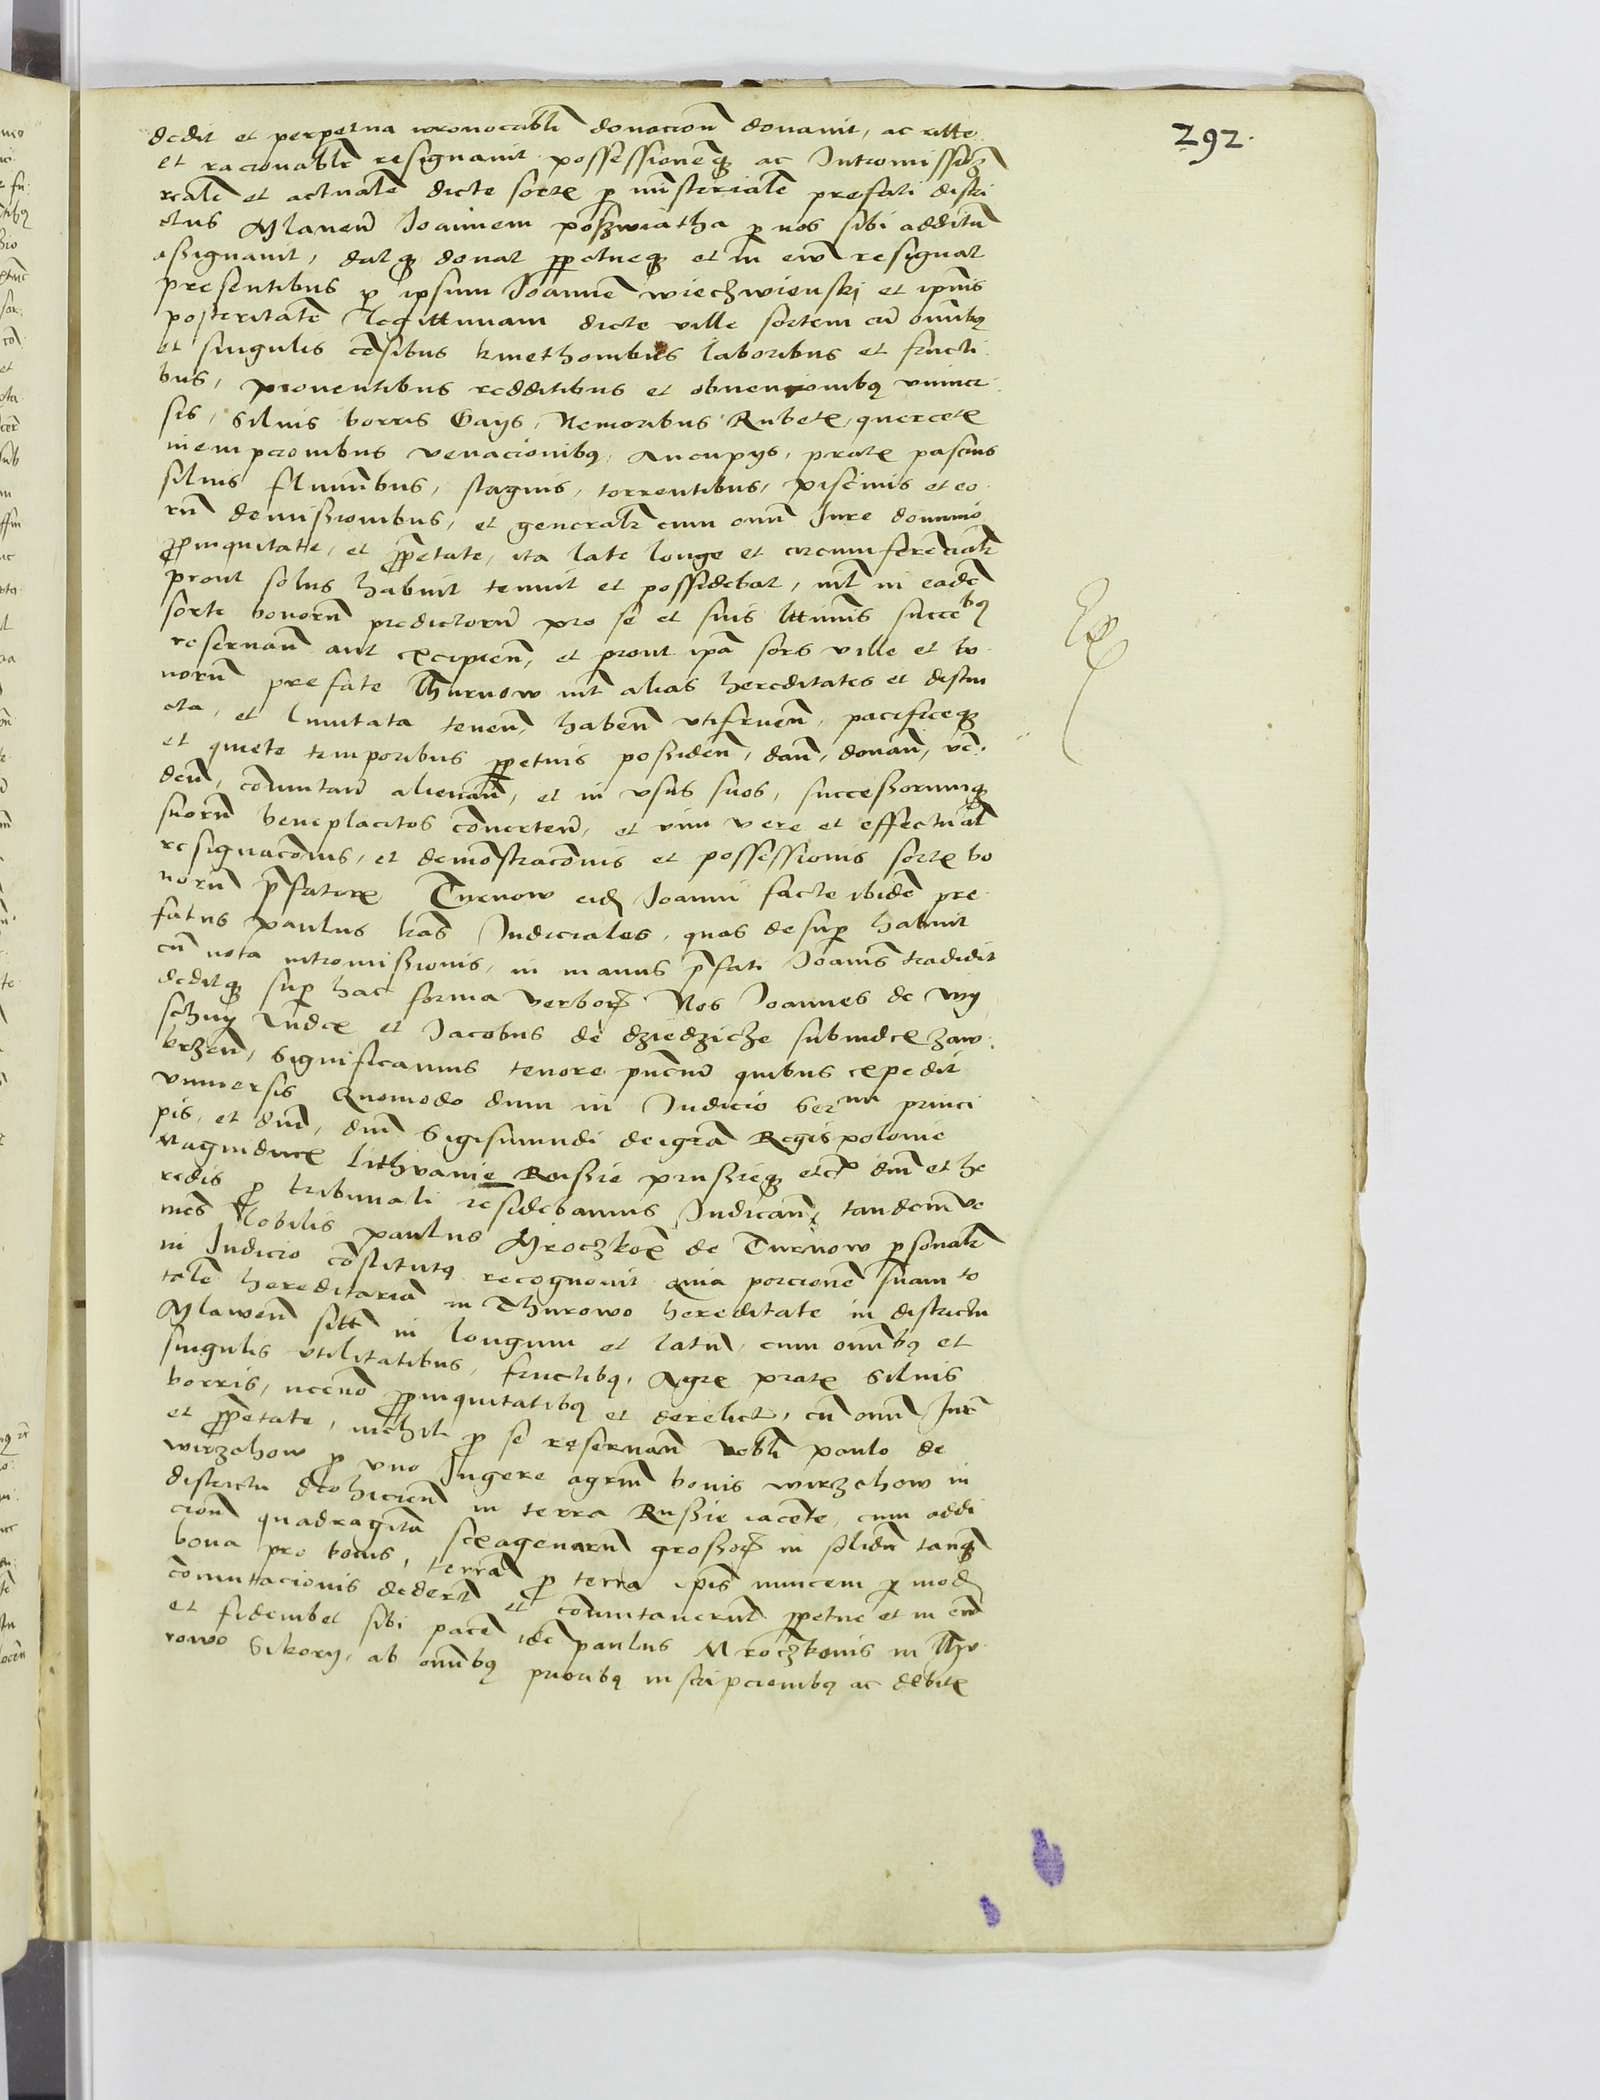 292.
dedit et perpetua irrevocabli donacion donavit, ac ritte
et racionablr resignavit possessionemq ac Intromissioz
realem et actualem dicte sortz p ministerialem prefati distri
ctus Mlaven Ioannem poszwiatha p nos sibi additum
assignavit, datq donat ppetueq et in ewm resignat
presentibus p ipsum Ioannem wiechwienski et ipius
posteritatem legittimam dicte ville sortem cum omnibq
et singulis censibus kmethonibus laboribus et fructi
bus, proventibus redditibus et obvencionibq univer
sis, Silvis borris Gays, Nemoribus Rubetz, quercetz
venacionibq, Aucupys, pratz pascuis
silvis fluminbus, stagnis, torrentibus, piscinis et eo
rum demissionibus, et generalr cum omni Iure dominio
ppinquitate, et ppetate, ita late longe et circumferencialr
prout solus habuit tenuit et possidebat, nil in eadem
sorte bonorum predictorum pro se et suis lttimis succbq
reservan aut excipien, et prout ipa sors ville et bo
norum prefate Thurnow int alias hereditates et distin
cta, et limitata tenen, haben utifruen, pacificeq
et quiete temporibus ppetuis possiden, dan, donan, ven
den, comutan alienan, et in usus suos, successorumq
suorum beneplacitos converten, et vim vere et effectualr
resignaconis, et demonstraconis et possessionis sortz bo
norum pfatorz Turnow eidem Ioanni facte ibidem pre
fatus paulus lras Iudiciales, quas desup habuit
cum nota intromissionis, in manus pfati Ioannis tradidit
deditq sup hac forma verborz Nos Ioannes de
Iudex et Iacobus de dziedzicze subiudex zaw
krzen, Significamus tenore pncium quibus expedit
universis Quomodo dum in Iudicio Sermi princi
pis, et dni, dni Sigismundi dei gra Regis polonie
Magniducis Lithvanie Russie prussieq etc dni et he
redis p tribunali residebamus Iudican, tandem ve
niens Nobilis paulus Mroczkoz de Turnow psonalr
in Iudicio constitutq recognovit quia porcionem suam to
talem hereditariam in Thurowo hereditate in districtu
Mlawen sitt in longum et latum, cum omnibq et
singulis utilitatibus, fructibq, Agrz pratz Silvis
borris, necnon ppinquitatibq et derelict, cum omni Iure
et ppetate, nichil p se reservan nobli paulo de
wirzchow p uno Iugere agrum bonis wirzchow in
districtu drohicien in terra Russie iacente, cum addi
cion quadraginta sexagenarum grossorz in solidum tanq
bona pro bonis, terram p terra ipis invicem p modum
comutacionis dederunt et comutaverunt ppetue et in ewm
et fideiubet sibi pacem idem paulus Mroczkonis in Thu
rowo Sikory, ab omnibq prioribq inscripcionibq ac debitz